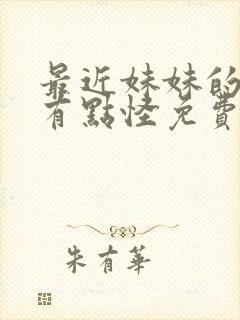 最近妹妹的
有點怪免費
朱有華